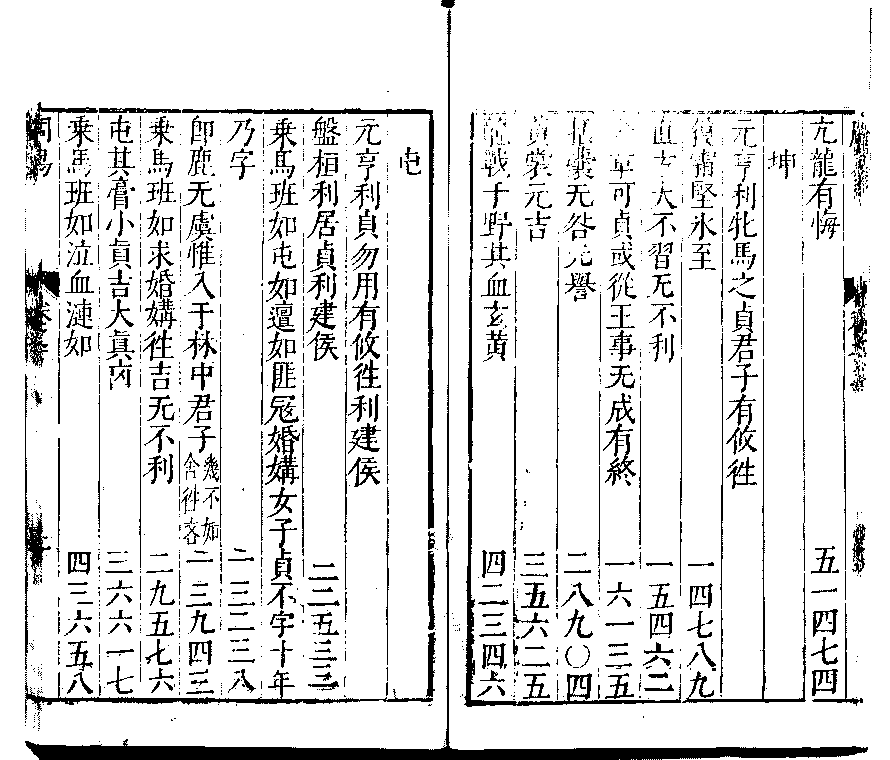 亢龍有悔 五一四七四
坤
元亨利牝馬之貞君子有攸徃
履霜堅氷至 一四七八九
直方大不習无不利 一五四六二
章可貞或從王事无成有終 一六一三五
括囊无咎无譽 二八九〇四
黄裳元吉 三五六二五
龍戰于野其血玄黄 四二三四六
屯
元亨利貞勿用有攸徃利建侯
盤桓利居貞利建侯 二二五三三
乘馬班如屯如邅如匪冦婚媾女子貞不字十年
乃字 二三二三八
即鹿无虞惟入于林中君子幾不如舍徃吝 二三九四三
乘馬班如求婚媾徃吉无不利 二九五七六
屯其膏小貞吉大貞凶 三六六一七
乘馬班如泣血漣如 四三六五八
周易